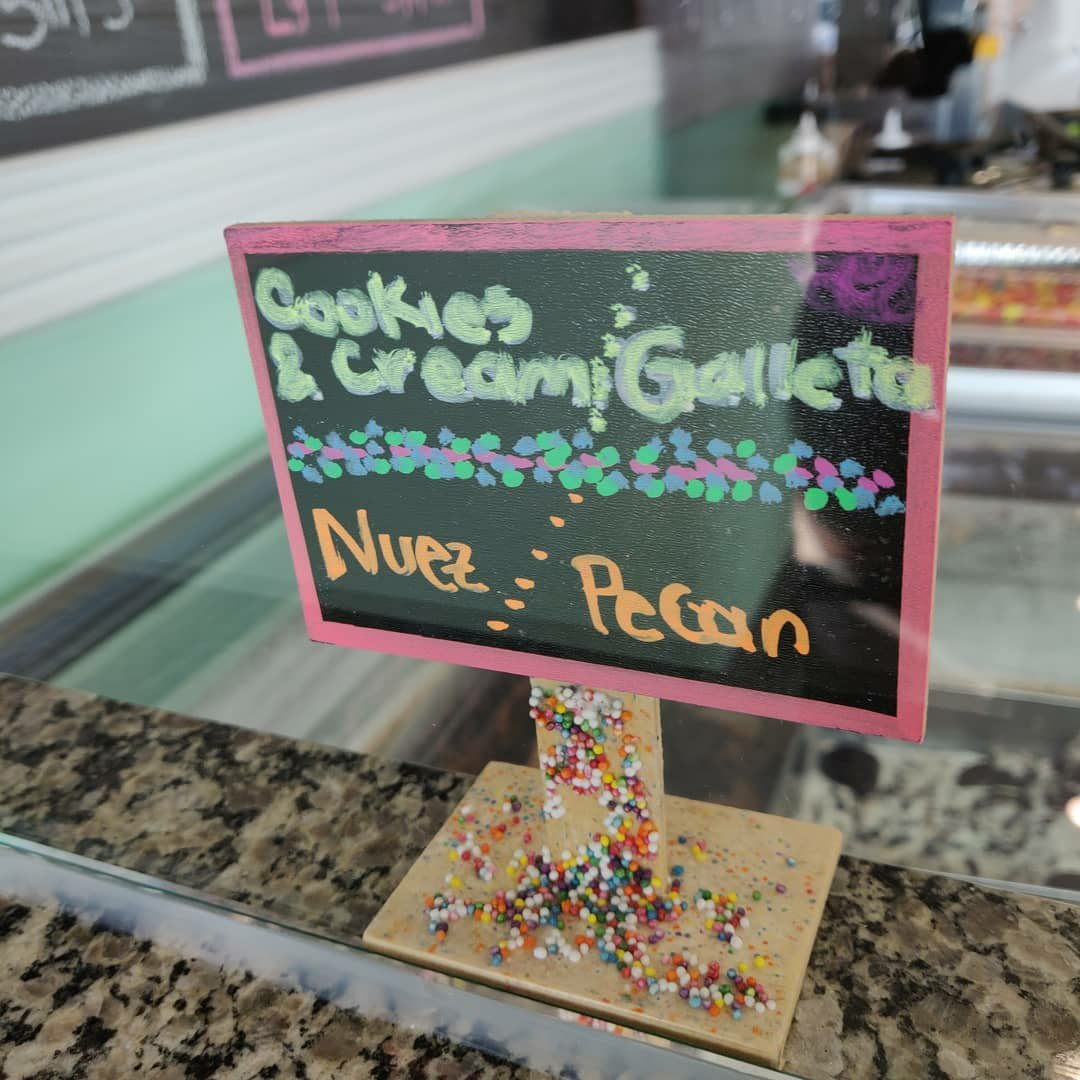 Cookies
& Cream Galleta
Nuez Pecan